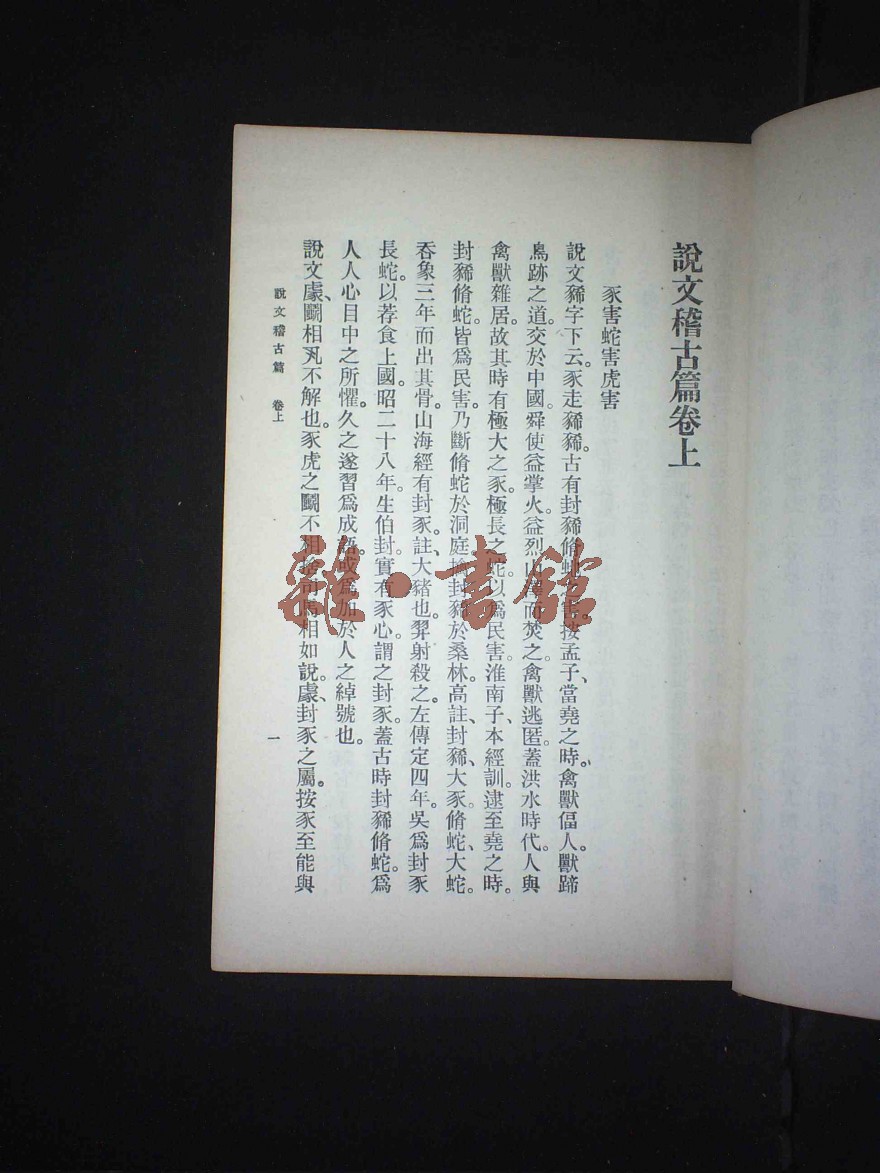 說文稽古篇卷上
豕害蛇害虎害
說文豨字下云。豕走豨豨。古有封豨脩蛇之害。按孟子、當堯之時。禽獸偪人。獸蹄
鳥跡之道。交於中國。舜使益掌火。益烈山澤而焚之。禽獸逃匿。蓋洪水時代。人與
禽獸雜居。故其時有極大之豕。極長之蛇。以爲民害。淮南子、本經訓。逮至堯之時。
封豨脩蛇。皆爲民害。乃斷脩蛇於洞庭。擒封豨於桑林。高註、封豨、大豕。脩蛇、大蛇。
吞象三年而出其骨。山海經有封豕。註、大豬也。羿射殺之。左傳定四年。吳爲封豕
長蛇。以荐食上國。昭二十八年。生伯封。實有豕心。謂之封豕。蓋古時封豨脩蛇。爲
人人心目中之所懼。久之遂習爲成語。或爲加於人之綽號也。
說文豦、鬭相丮不解也。豕虎之鬭不相捨。司馬相如說。豦、封豕之屬。按豕至能與
說文稽古篇 卷上
一
雜·書館